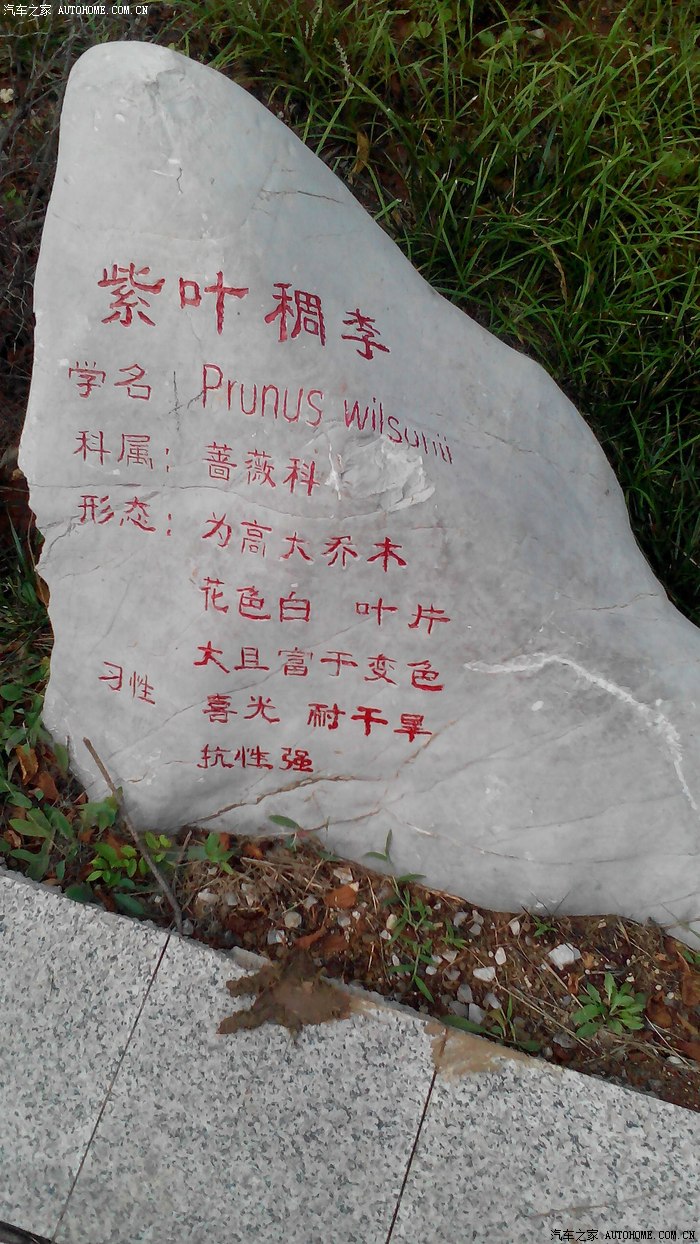 汽车之家 AUTOHOME.COM.CN
紫叶稠李
学名 Prunus wilsonii
科属: 蔷薇科
形态: 为高大乔木
花色白 叶片
大且富于变色
习性 喜光 耐干旱
抗性强
汽车之家 AUTOHOME.COM.CN